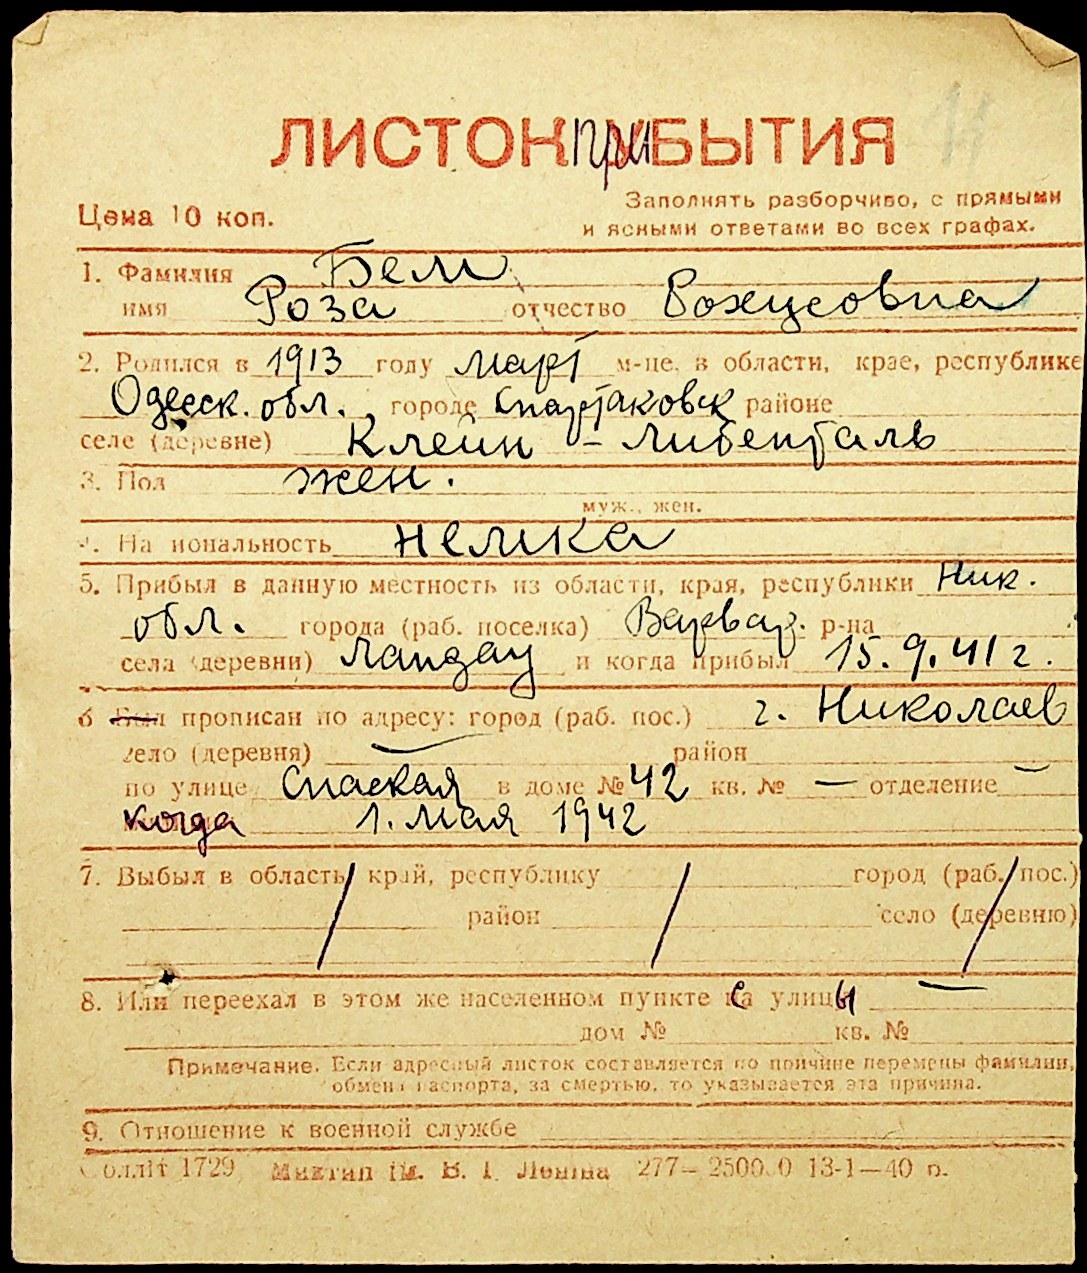 ЛИСТОК ПРИБЫТИЯ
Цена 10 коп.
Заполнять разборчиво, с прямыми
и ясными ответами во всех графах.
1. Фамилия Бем
имя Роза отчество
2. Родился в 1913 году март м-це, в области, крае, республике
Одесск. обл., городе Спартаковск районе
селе (деревне) Клейн - Либенталь
3. Пол жен.
муж., жен.
4. Национальность немка
5. Прибыл в данную местность из области, края, республики Ник.
обл. города (раб. поселка) Варвар. р-на
села (деревни) Ландау и когда прибыл 15.9.41 г.
6 Был прописан по адресу: город (раб. пос.) г. Николаев
село (деревня) — район
по улице Спаская в доме № 42 кв. № — отделение —
когда 1. мая 1942
7. Выбыл в область, край, республику город (раб. пос.)
район село (деревню)
8. Или переехал в этом же населенном пункте с улицы —
дом № кв. №
Примечание. Если адресный листок составляется по причине перемены фамилии,
обмена паспорта, за смертью, то указывается эта причина.
9. Отношение к военной службе
Облліт 1729 Миктип ім. В. І. Леніна 277— 13-1—40 п.